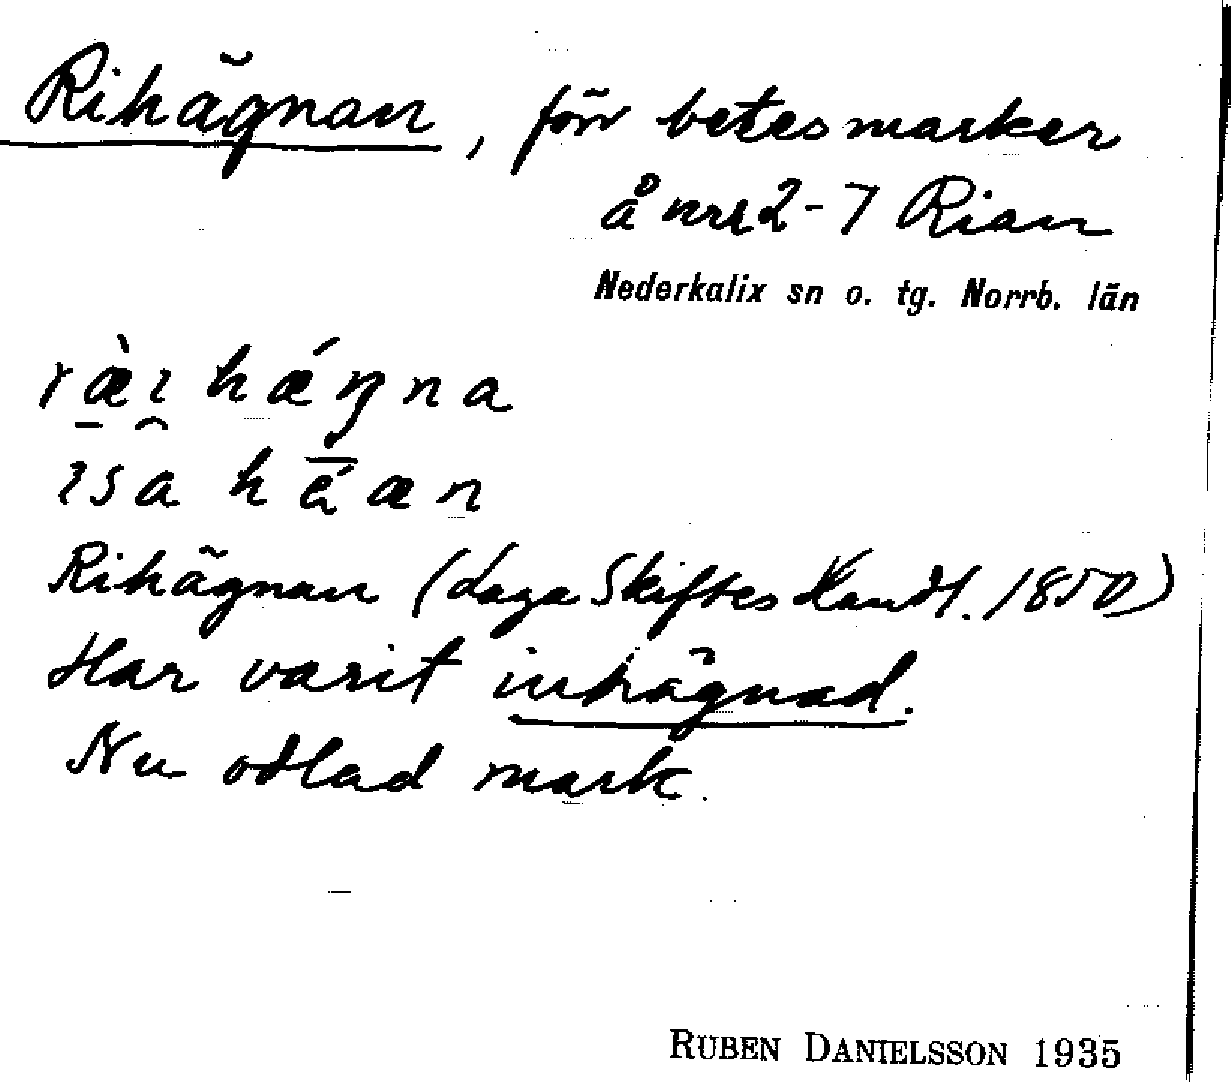 Rihägnan, förr betesmarker
å nrr 2-7 Rian
Nederkalix sn o. tg. Norrb. län
ræ̀ɪ hǽŋna
ɪsa hēæn
Rihägnan (Laga Skiftes Handl. 1850)
Har varit inhägnad.
Nu odlad mark.
RUBEN DANIELSSON 1935